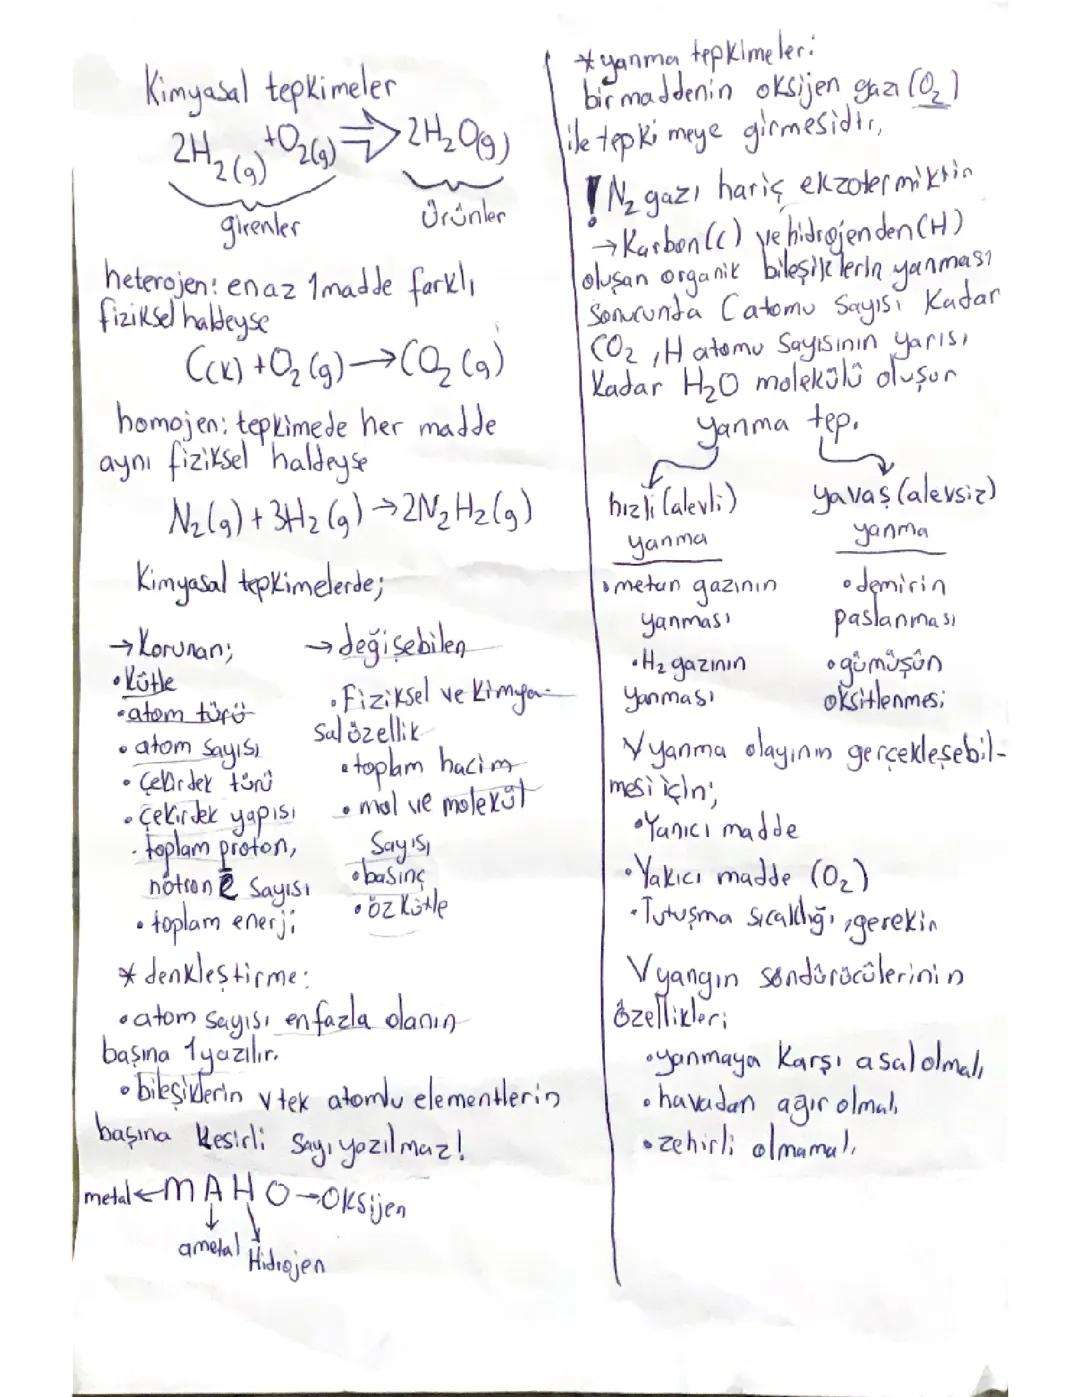 Kimyasal tepkimeler
2H₂(g) + O₂(g) ⇒ 2H₂O(g)
girenler
Ürünler
heterojen: en az 1 madde farklı
fiziksel haldeyse
C(k) + O₂(g) → CO₂(g)
homojen: tepkimede her madde
aynı fiziksel haldeyse
N₂(g) + 3H₂(g) → 2N₂H₂(g)
Kimyasal tepkimelerde;
→ Korunan;
• Kütle
• atom türü
• atom sayısı
• Çekirdek türü
• Çekirdek yapısı
• toplam proton,
nötron e sayısı
• toplam enerji
→ değişebilen
• Fiziksel ve Kimya-
sal özellik
• toplam hacim
• mol ve molekül
Sayısı
• basınç
• öz kütle
* denkleştirme:
• atom sayısı en fazla olanın
başına 1 yazılır.
• bileşiklerin v tek atomlu elementlerin
başına kesirli sayı yazılmaz!
metal ← M A H O → Oksijen
ametal
Hidrojen
* yanma tepkimeleri:
bir maddenin oksijen gazı (O₂)
ile tepkimeye girmesidir,
! N₂ gazı hariç ekzotermiktir
→ Karbon (C) ve hidrojenden (H)
oluşan organik bileşiklerin yanması
Sonucunda C atomu Sayısı Kadar
CO₂, H atomu Sayısının yarısı
Kadar H₂O molekülü oluşur
yanma tep.
hızlı (alevli)
yanma
• metan gazının
yanması
• H₂ gazının
yanması
yavaş (alevsiz)
yanma
• demirin
paslanması
• gümüşün
oksitlenmesi
V yanma olayının gerçekleşebil-
mesi için;
• Yanıcı madde
• Yakıcı madde (O₂)
• Tutuşma sıcaklığı, gerekir
V yangın söndürücülerinin
özellikleri
• yanmaya karşı asal olmalı
• havadan ağır olmalı
• zehirli olmamalı